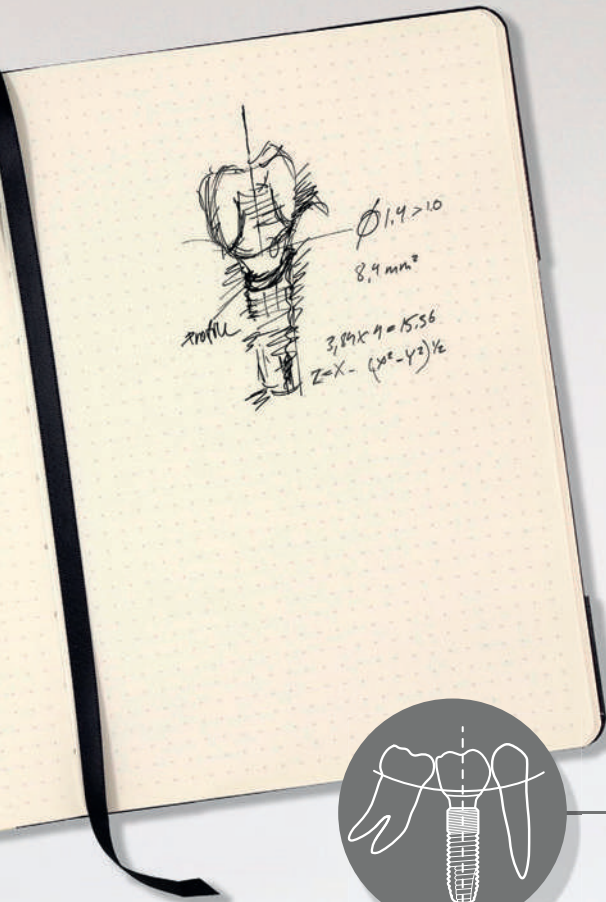 Ø 1,4 > 1.0
8,4 mm²
profile
3,89 x 4 = 15.56
Z = X - (x² - y²)½